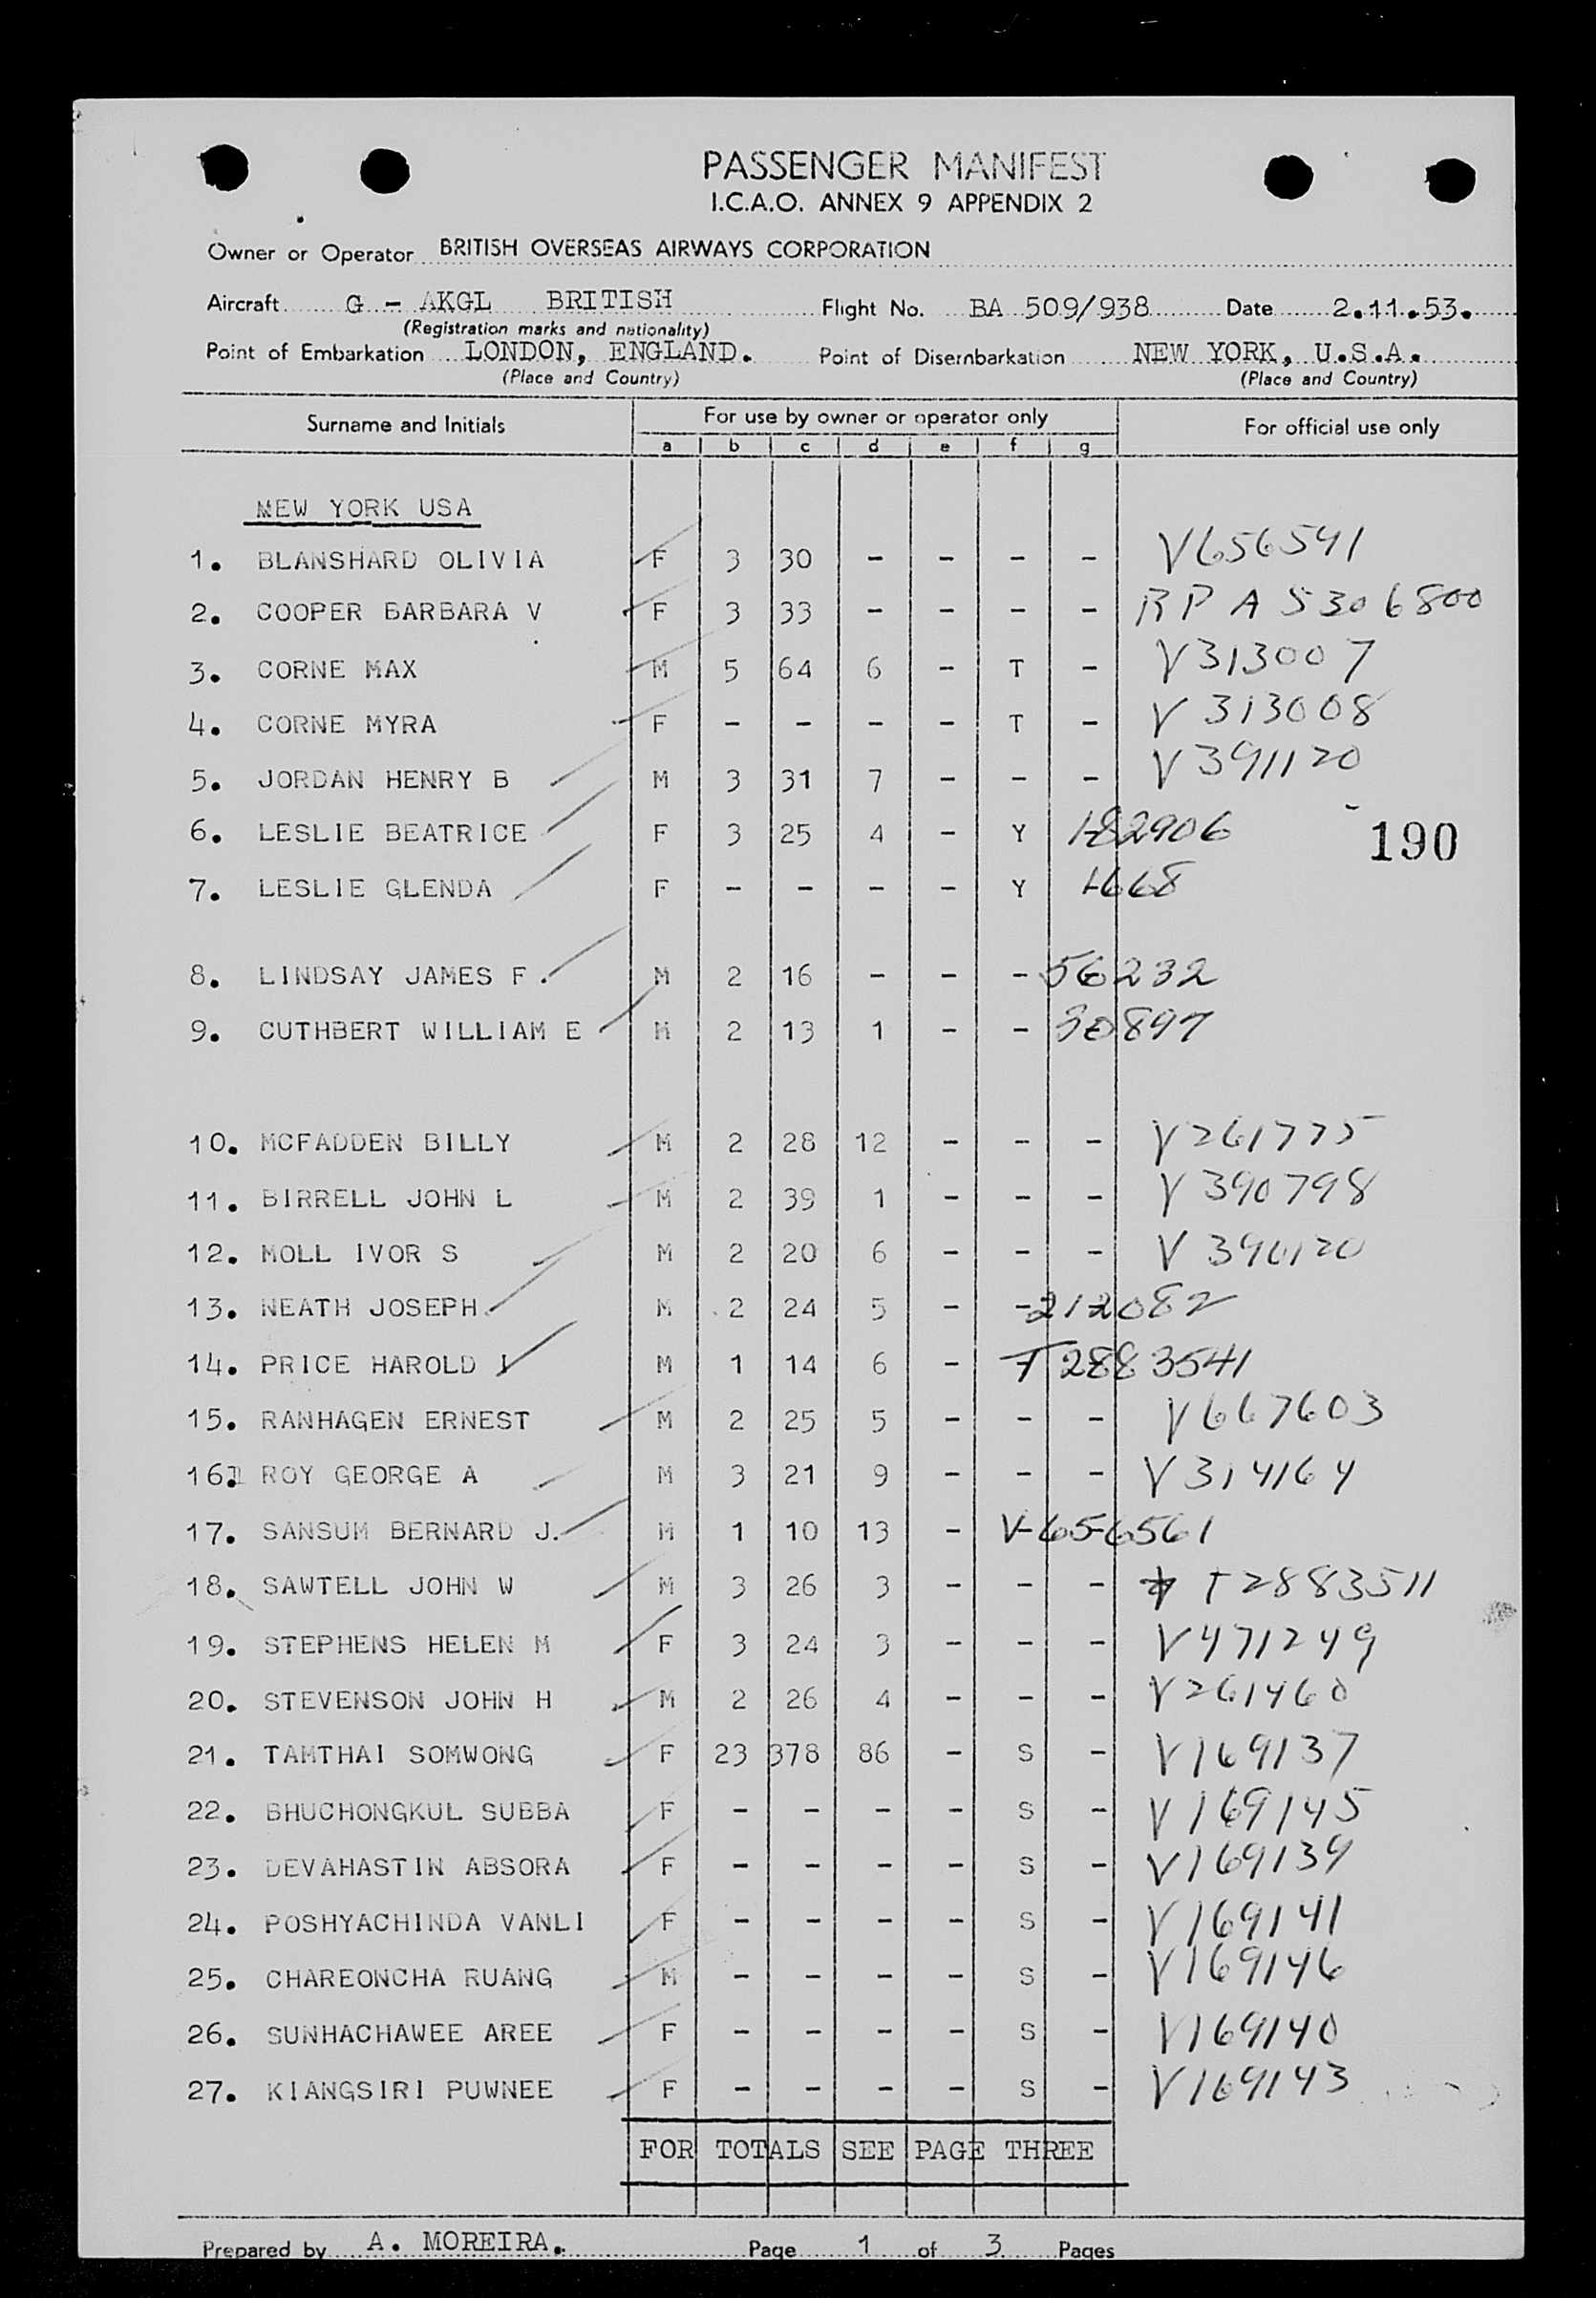 PASSENGER MANIFEST
I.C.A.O. ANNEX 9 APPENDIX 2
Owner or Operator BRITISH OVERSEAS AIRWAYS CORPORATION
Aircraft G - AKGL BRITISH Flight No. BA 509/938 Date 2.11.53.
(Registration marks and nationality)
Point of Embarkation LONDON, ENGLAND. Point of Disembarkation NEW YORK, U.S.A.
(Place and Country) (Place and Country)
Surname and Initials For use by owner or operator only For official use only
a b c d e f g
NEW YORK USA
1. BLANSHARD OLIVIA F 3 30 - - - - V656541
2. COOPER BARBARA V F 3 33 - - - - RP A 5306800
3. CORNE MAX M 5 64 6 - T - V313007
4. CORNE MYRA F - - - - T - V 313008
5. JORDAN HENRY B M 3 31 7 - - - V391120
6. LESLIE BEATRICE F 3 25 4 - Y 182906
190
7. LESLIE GLENDA F - - - - Y 1668
8. LINDSAY JAMES F. M 2 16 - - - 56232
9. CUTHBERT WILLIAM E M 2 13 1 - - 30897
10. MCFADDEN BILLY M 2 28 12 - - - V261775
11. BIRRELL JOHN L M 2 39 1 - - - V 390798
12. MOLL IVOR S M 2 20 6 - - -
13. NEATH JOSEPH M 2 24 5 - - 212082
14. PRICE HAROLD I M 1 14 6 - T 2883541
15. RANHAGEN ERNEST M 2 25 5 - - - V667603
16. ROY GEORGE A M 3 21 9 - - - V314164
17. SANSUM BERNARD J. M 1 10 13 - V-656561
18. SAWTELL JOHN W M 3 26 3 - - - T2883511
19. STEPHENS HELEN M F 3 24 3 - - - V471249
20. STEVENSON JOHN H M 2 26 4 - - - V261460
21. TAMTHAI SOMWONG F 23 378 86 - S - V169137
22. BHUCHONGKUL SUBBA F - - - - S - V169145
23. DEVAHASTIN ABSORA F - - - - S - V169139
24. POSHYACHINDA VANLI F - - - - S - V169141
25. CHAREONCHA RUANG M - - - - S - V169146
26. SUNHACHAWEE AREE F - - - - S - V169140
27. KIANGSIRI PUWNEE F - - - - S - V169143
FOR TOTALS SEE PAGE THREE
Prepared by A. MOREIRA. Page 1 of 3 Pages